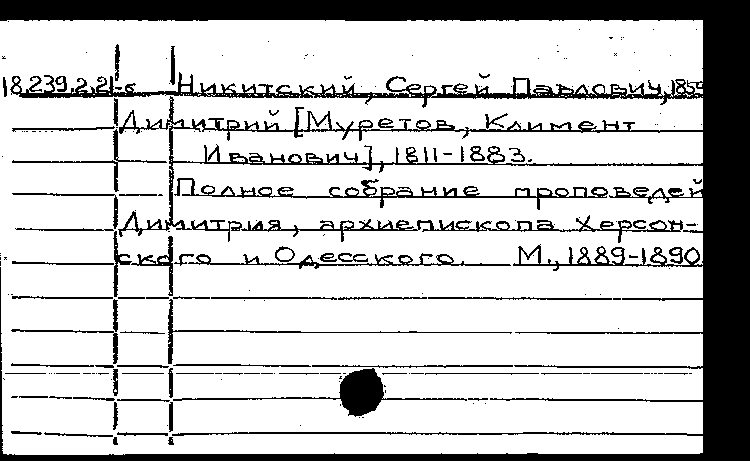 18.239.2.21-б Никитский, Сергей Павлович, 1859
Димитрий [Муретов, Климент
Иванович], 1811-1883.
Полное собрание проповедей
Димитрия, архиепископа Херсон-
ского и Одесского. М., 1889-1890